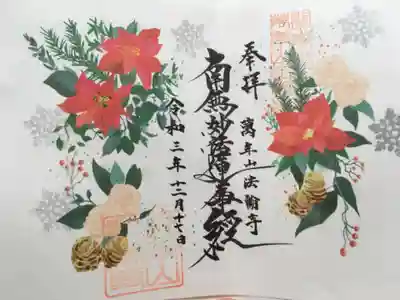 奉拝
萬年山法龍寺
南無妙法蓮華経
令和三年十二月十七日